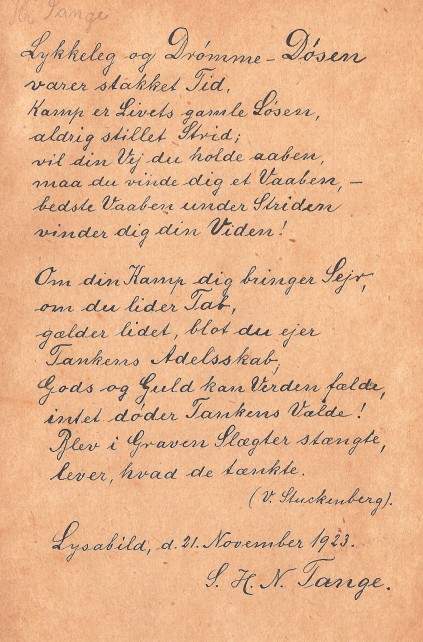 Hr Tange
Lykkeleg og Drömme-Dösen
varer stakket Tid,
Kamp er Livets gamle Lösen,
aldrig stillet Strid;
vil din Vej du holde aaben,
maa du vinde dig et Vaaben, –
bedste Vaaben under Striden
vinder dig din Viden!
Om din Kamp dig bringer Sejr,
om du lider Tab,
gælder lidet, blot du ejer
Tankens Adelsskab;
Gods og Guld kan Verden fælde,
intet döder Tankens Vælde!
Blev i Graven Slægter stængte,
lever, hvad de tænkte.
(V. Stuckenberg).
Lysabild, d. 21. November 1923.
S. H. N. Tange.